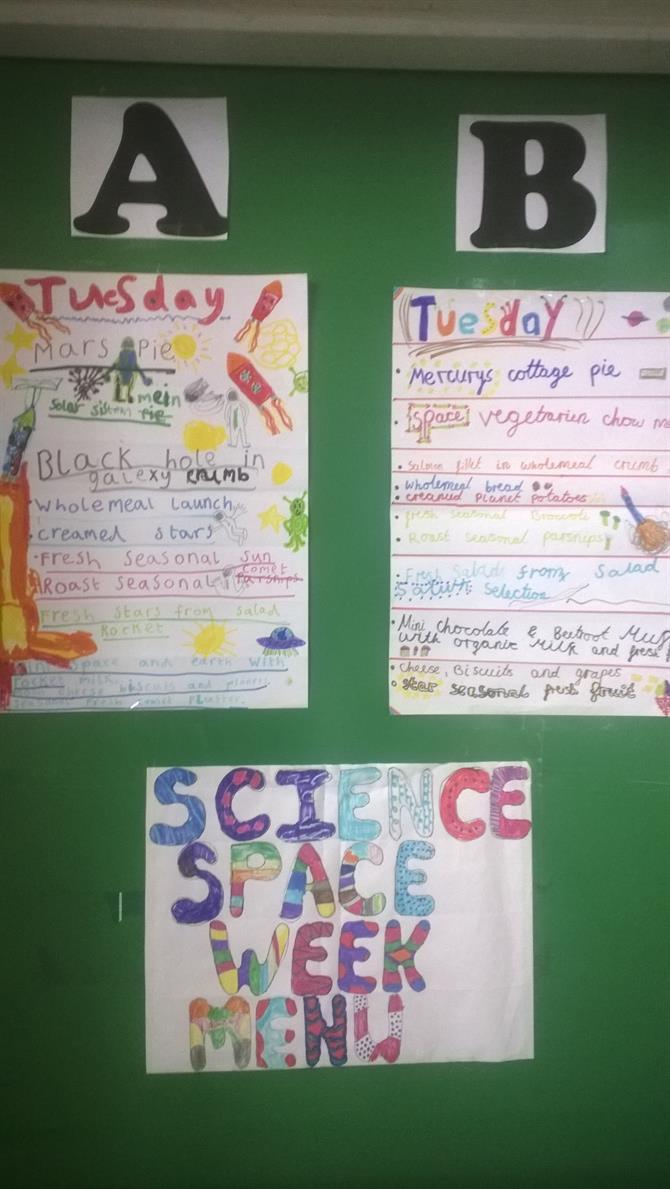 A
Tuesday
Mars Pie
mein
Solar sistem pie
Black hole in
galexy crumb
Wholemeal launch
creamed stars
Fresh seasonal sun
comet
Roast seasonal parships
Fresh stars from salad
Rocket
space and earth with
rocket milk.
cheese biscuits and planets
seasonal fresh comet
B
Tuesday
Mercurys cottage pie
Space vegetarien chow me
Salmon fillet in wholemeal crumb
wholemeal bread
creamed Planet potatoes
fresh seasonal Broccoli
Roast seasonal parsnips
Fresh Salads from Salad
Saturn Selection
Mini chocolate & Beetroot Muf
with organic Milk and fresh f
cheese, Biscuits and grapes
star seasonal fresh fruit
SCIENCE
SPACE
WEEK
MENU